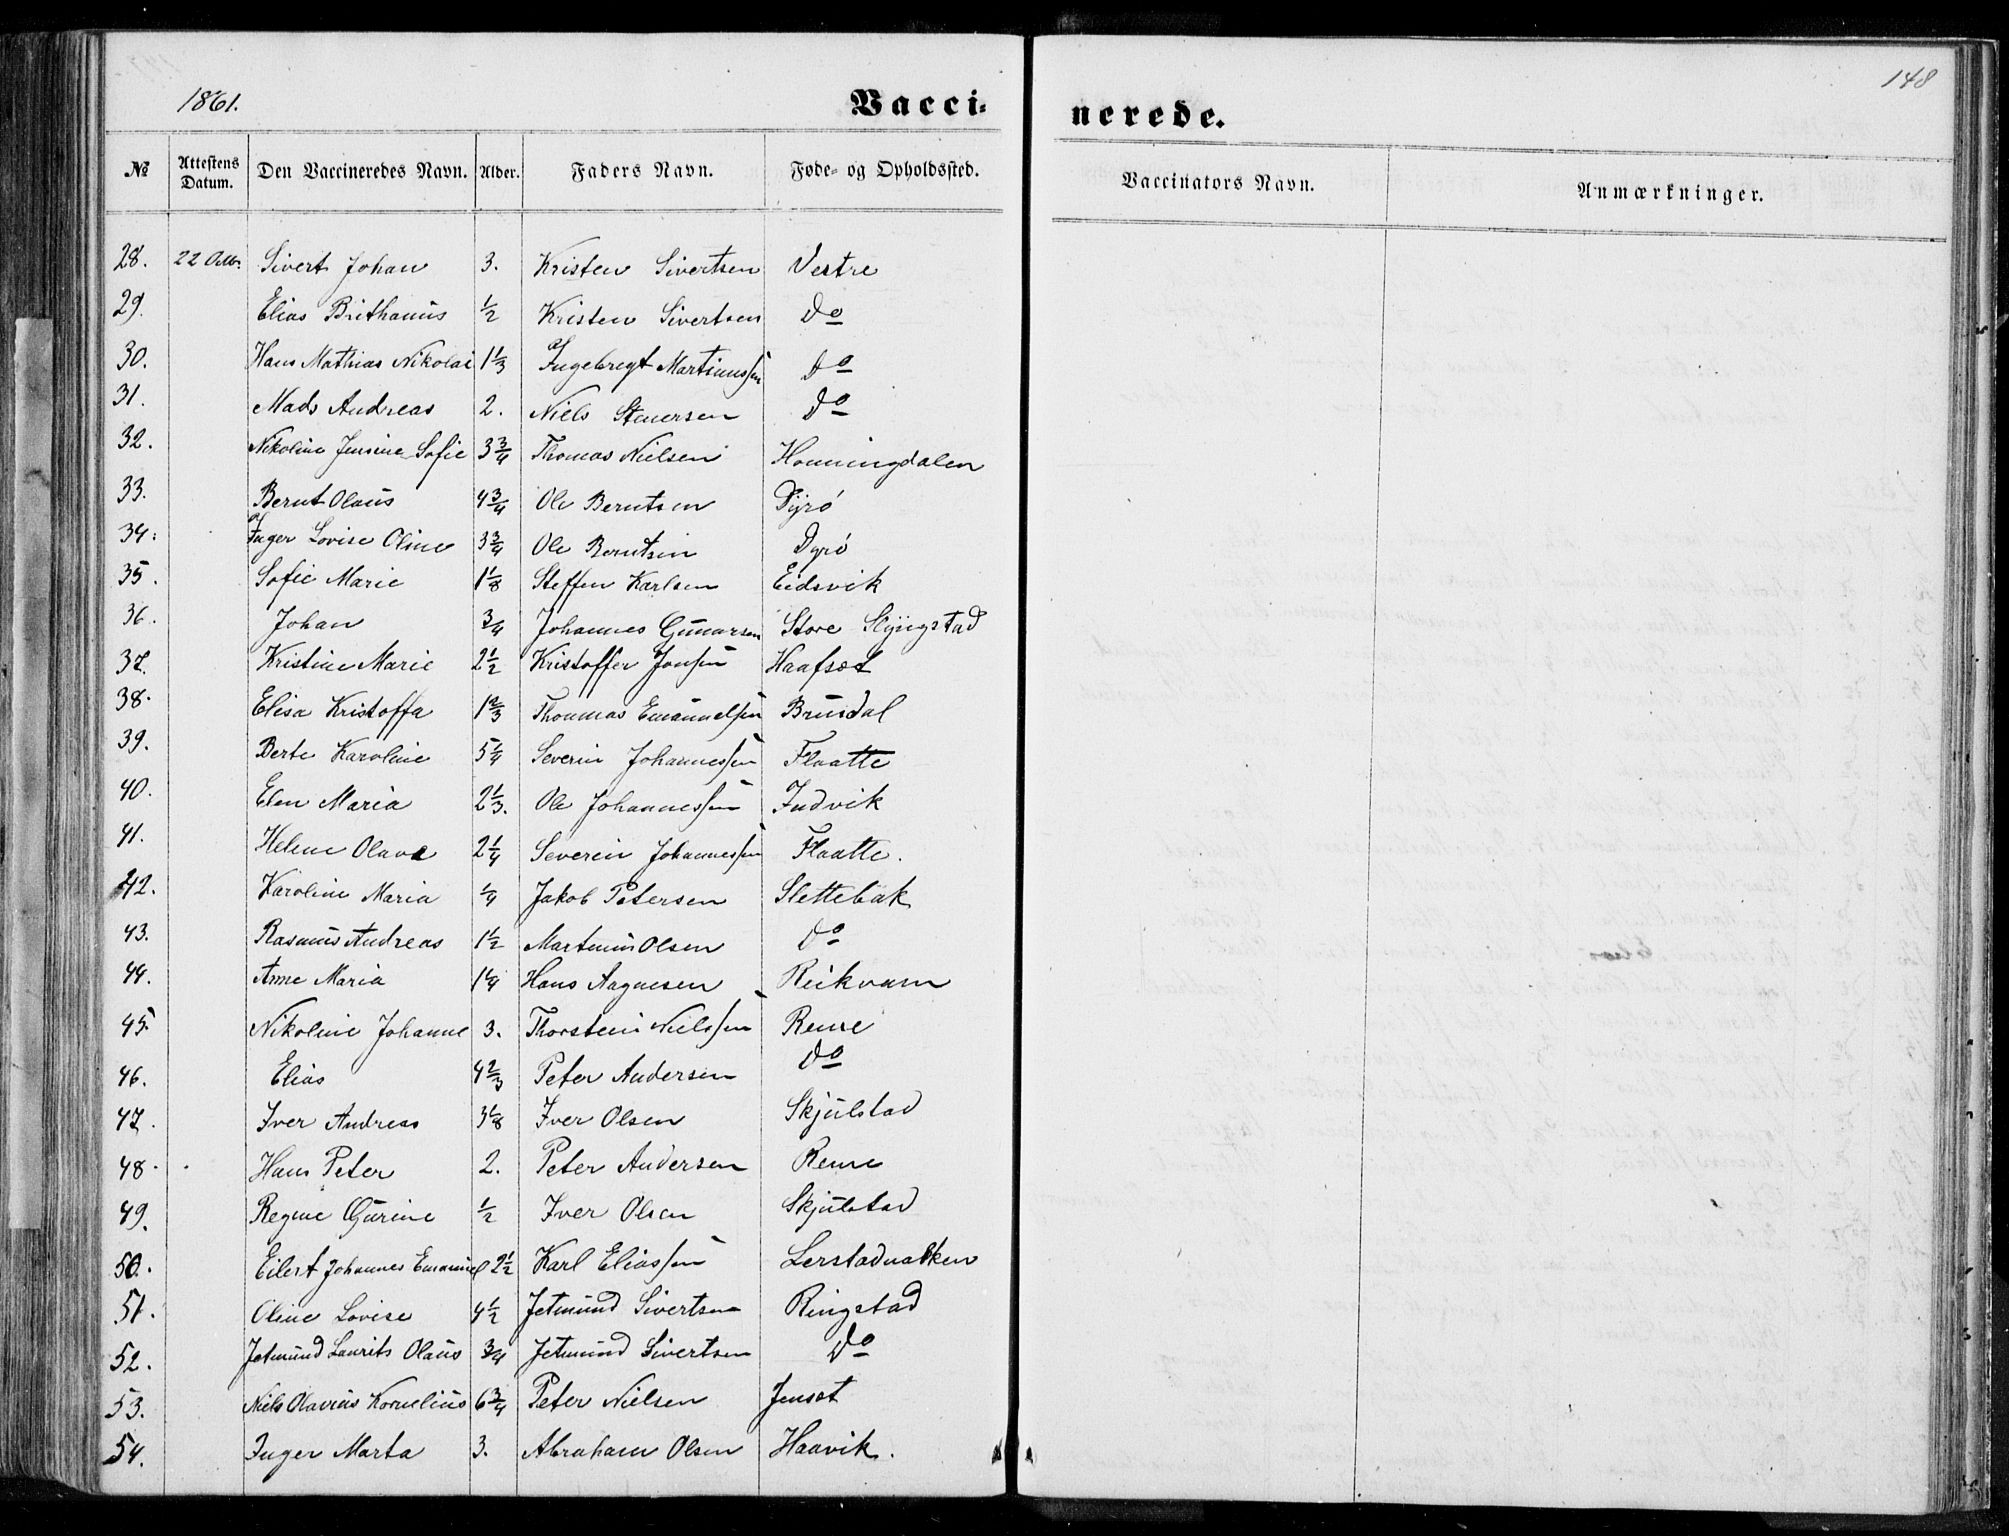 148
1861.
Vacci-
nerede.
№ Attestens Datum. Den Vaccineredes Navn. Alder. Faders Navn. Føde- og Opholdssted.
Vaccinators Navn. Anmærkninger.
28. 22 Octbr. Sivert Johan 3. Kristen Sivertsen Vestre
29. Elias Brithanus ½ Kristen Sivertsen Do
30. Hans Mathias Nikolai 1⅓ Ingebregt Martinussen Do
31. Mads Andreas 2. Niels Do
32. Nikoline Jensine Sofie 3¾ Thomas Nielsen Honningdalen
33. Bernt Olaus 4¾ Ole Berntsen Dyrø
34. Inger Lovise Oline 3¾ Ole Berntsen Dyrø
35. Sofie Marie 1⅛ Steffen Karlsen Eidsvik
36. Johan ¾ Johannes Gunarsen Store Slyngstad
37. Kristine Marie 2½ Kristoffer Jonsen Haafset
38. Elisa Kristoffa 1⅔ Thommas Emanuelsen Brusdal
39. Berte Karoline 5¼ Severin Johannessen Flaatte
40. Elen Maria 2⅓. Ole Johannessen Indvik
41. Helene Olava 2¼ Severin Johannessen Flaatte.
42. Karoline Maria ¼ Jakob Petersen Slettebak
43. Rasmus Andreas 1½ Martinus Olsen Do
44. Anne Maria 1¼ Hans Aagnesen Reikvam
45. Nikoline Johanne 3. Thorstein Nielssen Reme
46. Elias 4⅔ Peter Andersen Do
47. Iver Andreas 3⅛ Iver Olsen Skjulstad
48. Hans Peter 2. Peter Andersen Reme
49. Regine Gurine ½ Iver Olsen Skjulstad
50. Eilert Johannes Emanuel 2½ Karl Eliassen Lerstadnakken
51. Oline Lovise 4½ Jetmund Sivertsen Ringstad
52. Jetmund Laurits Olaus ¾ Jetmund Sivertsen Do
53. Niels Olavius Kornelius 6¾ Peter Nielsen Jenset
54. Inger Marta 3. Abraham Olsen Haavik.